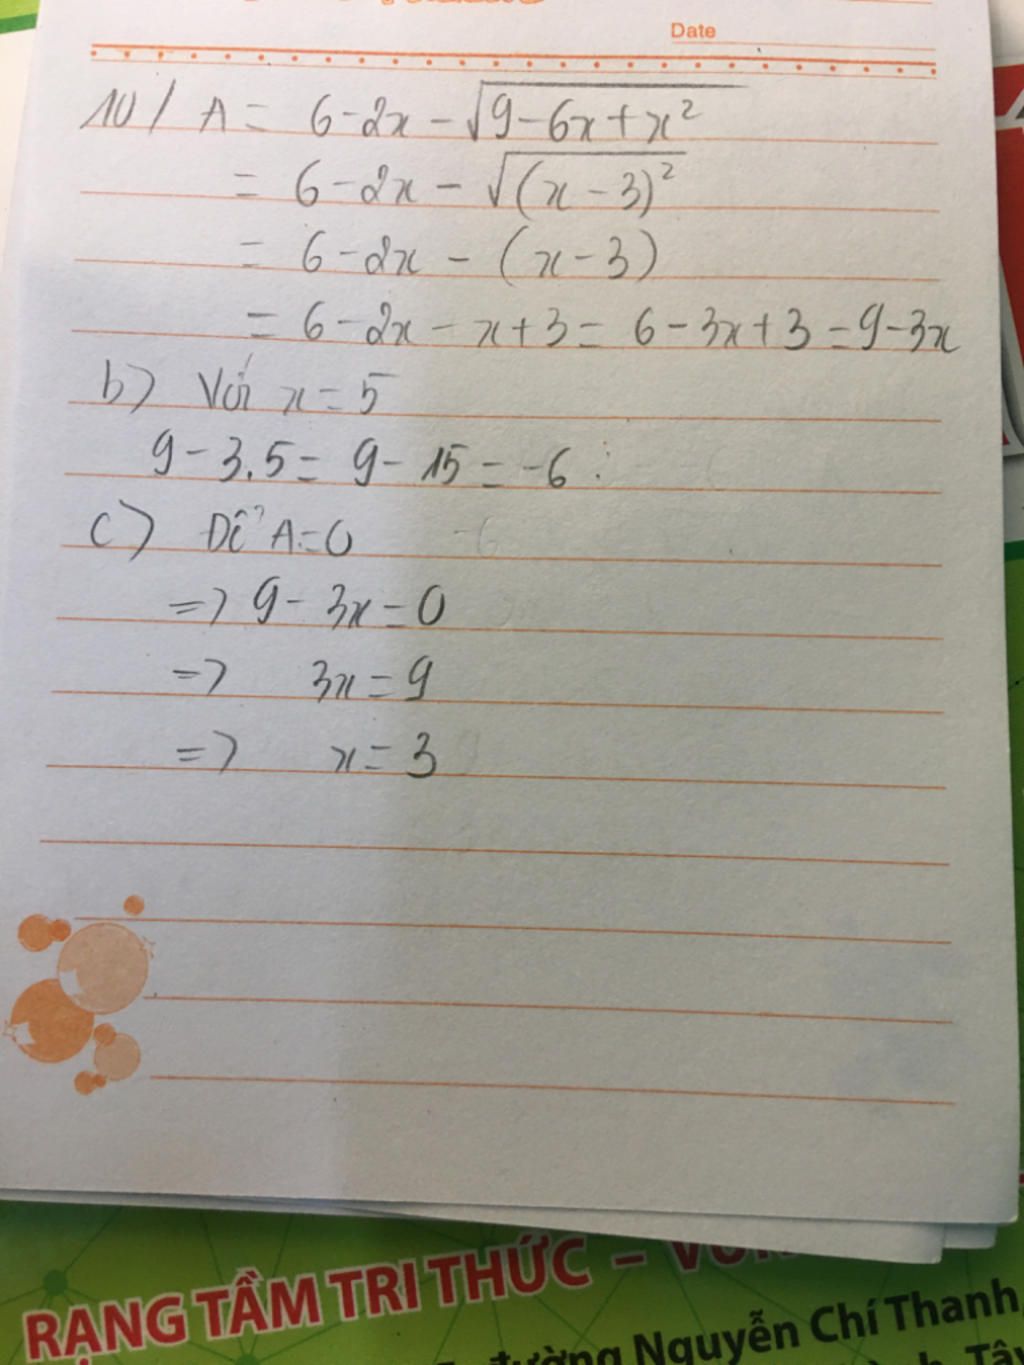 Date
10/ A = 6-2x-√(9-6x+x²)
= 6-2x-√((x-3)²)
= 6-2x-(x-3)
= 6-2x-x+3 = 6-3x+3 = 9-3x
b) Với x = 5
9-3.5 = 9-15 = -6
c) Để A=0
=> 9-3x=0
=> 3x=9
=> x=3
RẠNG TẦM TRI THỨC -
đường Nguyễn Chí Thanh